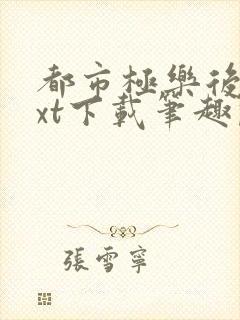 都市極樂後
xt下載筆趣
張雪寧